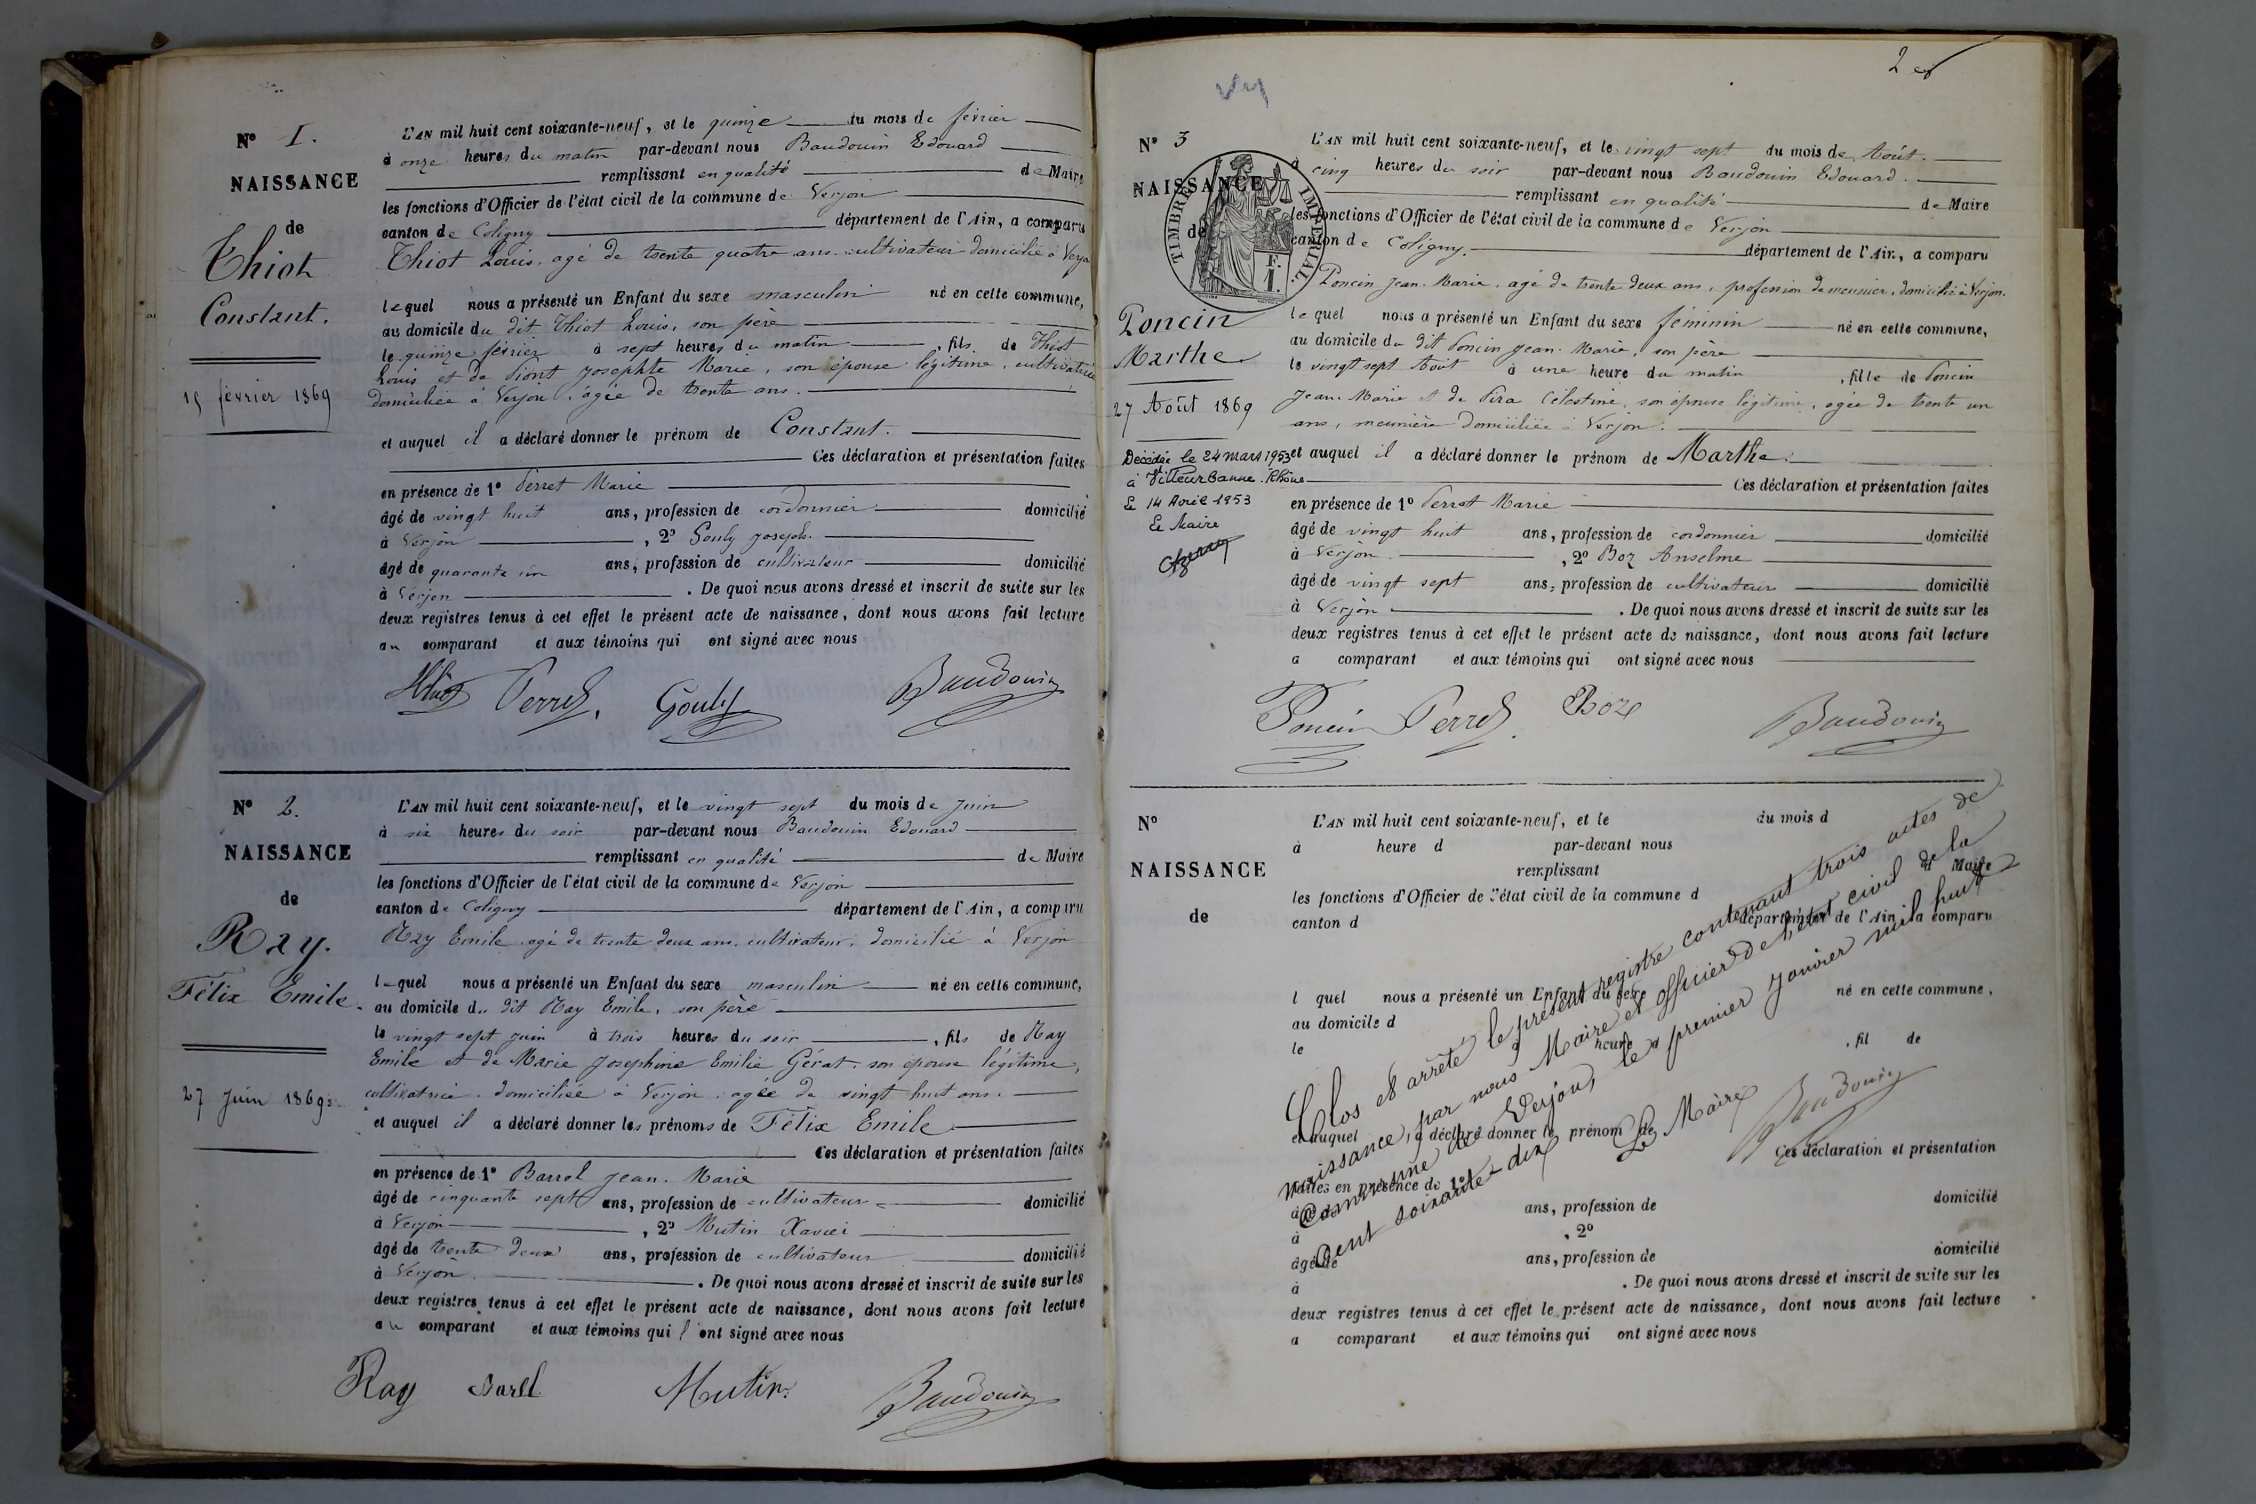 N° 1.
NAISSANCE
de
Thiot
Constant.
15 février 1869
L'AN mil huit cent soixante-neuf, et le quinze du mois de février
à onze heures du matin par-devant nous Baudouin Edouard
remplissant en qualité de Maire
les fonctions d'Officier de l'état civil de la commune de Verjon
canton de Coligny département de l'Ain, a comparu
Thiot Louis, agé de trente quatre ans, cultivateur domicilié à Verjon
lequel nous a présenté un Enfant du sexe masculin né en cette commune,
au domicile du dit Thiot Louis, son père
le quinze février à sept heures du matin, fils de Thiot
Louis et de Piont Josephte Marie, son épouse légitime, cultivatrice
domiciliée à Verjon, âgée de trente ans.
et auquel il a déclaré donner le prénom de Constant.
Ces déclaration et présentation faites
en présence de 1° Perret Marie
âgé de vingt huit ans, profession de cordonnier domicilié
à Verjon, 2° Gouly Joseph.
âgé de quarante un ans, profession de cultivateur domicilié
à Verjon. De quoi nous avons dressé et inscrit de suite sur les
deux registres tenus à cet effet le présent acte de naissance, dont nous avons fait lecture
au comparant et aux témoins qui ont signé avec nous
Thiot Perret. Gouly Baudouin
N° 2.
NAISSANCE
de
Ray.
Félix Emile.
27 Juin 1869.
L'AN mil huit cent soixante-neuf, et le vingt sept du mois de Juin
à six heures du soir par-devant nous Baudouin Edouard
remplissant en qualité de Maire
les fonctions d'Officier de l'état civil de la commune de Verjon
canton de Coligny département de l'Ain, a comparu
Ray Emile, agé de trente deux ans, cultivateur, domicilié à Verjon
lequel nous a présenté un Enfant du sexe masculin né en cette commune,
au domicile du dit Ray Emile, son père
le vingt sept Juin à trois heures du soir, fils de Ray
Emile et de Marie Josephine Emilie Gérat, son épouse légitime,
cultivatrice, domiciliée à Verjon, agée de vingt huit ans.
et auquel il a déclaré donner les prénoms de Félix Emile
Ces déclaration et présentation faites
en présence de 1° Barrel Jean-Marie
âgé de cinquante sept ans, profession de cultivateur domicilié
à Verjon, 2° Mutin Xavier
âgé de trente deux ans, profession de cultivateur domicilié
à Verjon. De quoi nous avons dressé et inscrit de suite sur les
deux registres tenus à cet effet le présent acte de naissance, dont nous avons fait lecture
au comparant et aux témoins qui ont signé avec nous
Ray Barel Mutin. Baudouin
2
N° 3
NAISSANCE
de
TIMBRE IMPÉRIAL.
F. 1.
Poncin
Marthe
27 Août 1869
Décédée le 24 mars 1953
à Villeurbanne. Rhône
le 14 Avril 1953
Le Maire
L'AN mil huit cent soixante-neuf, et le vingt sept du mois de Août.
à cinq heures du soir par-devant nous Baudouin Edouard.
remplissant en qualité de Maire
les fonctions d'Officier de l'état civil de la commune de Verjon
canton de Coligny. département de l'Ain, a comparu
Poncin Jean-Marie, agé de trente deux ans, profession de meunier, domicilié à Verjon.
lequel nous a présenté un Enfant du sexe féminin né en cette commune,
au domicile du dit Poncin Jean-Marie, son père
le vingt sept Août à une heure du matin, fille de Poncin
Jean-Marie et de Pira Célestine, son épouse légitime, agée de trente un
ans, meunière domiciliée à Verjon.
et auquel il a déclaré donner le prénom de Marthe.
Ces déclaration et présentation faites
en présence de 1° Perret Marie
âgé de vingt huit ans, profession de cordonnier domicilié
à Verjon, 2° Boz Anselme
âgé de vingt sept ans, profession de cultivateur domicilié
à Verjon. De quoi nous avons dressé et inscrit de suite sur les
deux registres tenus à cet effet le présent acte de naissance, dont nous avons fait lecture
a comparant et aux témoins qui ont signé avec nous
Poncin Perret. Boz Baudouin
N°
NAISSANCE
de
L'AN mil huit cent soixante-neuf, et le du mois d
à heure d par-devant nous
remplissant d Maire
les fonctions d'Officier de l'état civil de la commune d
canton d département de l'Ain, a comparu
l quel nous a présenté un Enfant du sexe né en cette commune,
au domicile d
le à heure d, fil de
et auquel a déclaré donner le prénom de
Ces déclaration et présentation
faites en présence de 1°
âgé de ans, profession de domicilié
à, 2°
âgé de ans, profession de domicilié
à. De quoi nous avons dressé et inscrit de suite sur les
deux registres tenus à cet effet le présent acte de naissance, dont nous avons fait lecture
a comparant et aux témoins qui ont signé avec nous
Clos et arrêté le présent registre contenant trois actes de
naissance, par nous Maire et officier de l'état civil de la
Commune de Verjon, le premier Janvier mil huit
cent soixante-dix Le Maire
Baudouin